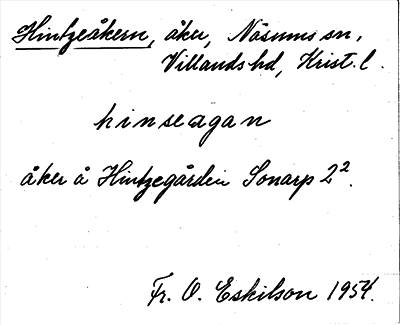 Hintzeåkern, åker, Näsums sn,
Villands hd, Krist. l.
hinseagan
åker å Hintzegården Sonarp 2².
Fr. O. Eskilson 1954.